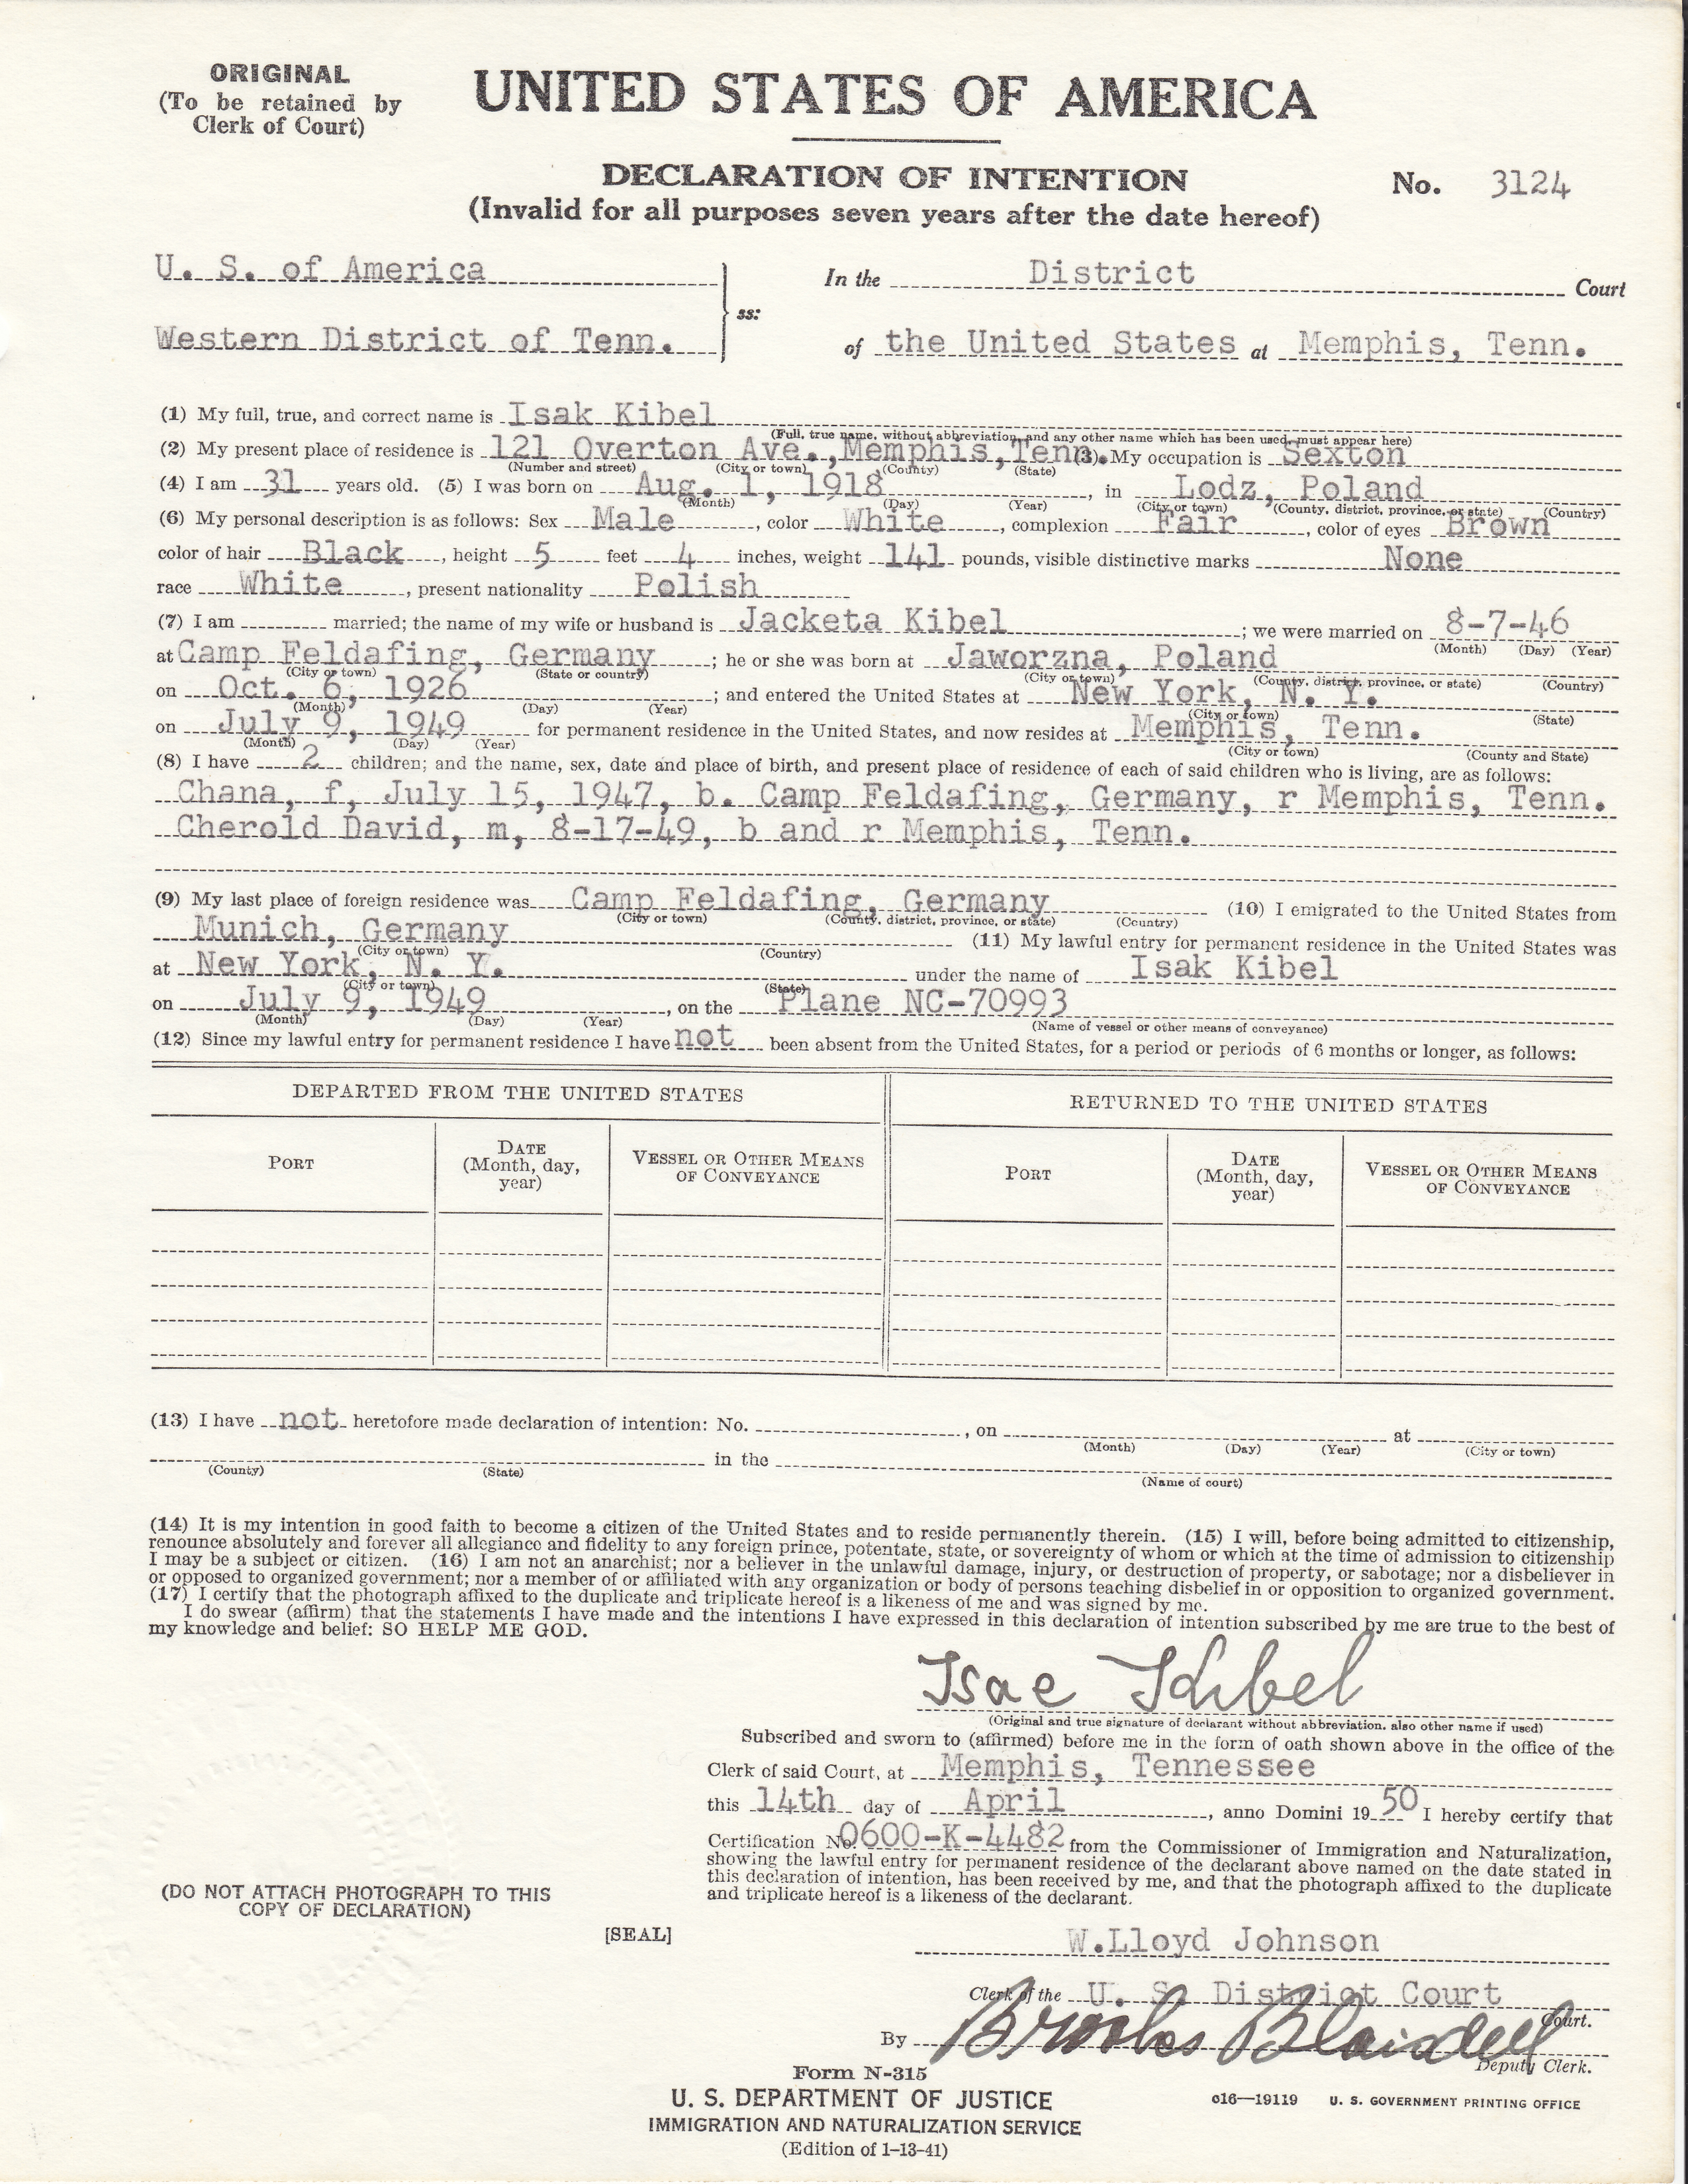 ORIGINAL
(To be retained by
Clerk of Court)
UNITED STATES OF AMERICA
DECLARATION OF INTENTION
No. 3124
(Invalid for all purposes seven years after the date hereof)
U. S. of America
In the District Court
ss:
Western District of Tenn.
of the United States at Memphis, Tenn.
(1) My full, true, and correct name is Isak Kibel
(Full, true name, without abbreviation, and any other name which has been used, must appear here)
(2) My present place of residence is 121 Overton Ave., Memphis, Tenn. (3) My occupation is Sexton
(Number and street) (City or town) (County) (State)
(4) I am 31 years old. (5) I was born on Aug. 1, 1918, in Lodz, Poland
(Month) (Day) (Year) (City or town) (County, district, province, or state) (Country)
(6) My personal description is as follows: Sex Male, color White, complexion Fair, color of eyes Brown
color of hair Black, height 5 feet 4 inches, weight 141 pounds, visible distinctive marks None
race White, present nationality Polish
(7) I am married; the name of my wife or husband is Jacketa Kibel; we were married on 8-7-46
(Month) (Day) (Year)
at Camp Feldafing, Germany; he or she was born at Jaworzna, Poland
(City or town) (State or country) (City or town) (County, district, province, or state) (Country)
on Oct. 6, 1926; and entered the United States at New York, N. Y.
(Month) (Day) (Year) (City or town) (State)
on July 9, 1949 for permanent residence in the United States, and now resides at Memphis, Tenn.
(Month) (Day) (Year) (City or town) (County and State)
(8) I have 2 children; and the name, sex, date and place of birth, and present place of residence of each of said children who is living, are as follows:
Chana, f, July 15, 1947, b. Camp Feldafing, Germany, r Memphis, Tenn.
Cherold David, m, 8-17-49, b and r Memphis, Tenn.
(9) My last place of foreign residence was Camp Feldafing, Germany (10) I emigrated to the United States from
(City or town) (County, district, province, or state) (Country)
Munich, Germany (11) My lawful entry for permanent residence in the United States was
(City or town) (Country)
at New York, N. Y. under the name of Isak Kibel
(City or town) (State)
on July 9, 1949, on the Plane NC-70993
(Month) (Day) (Year) (Name of vessel or other means of conveyance)
(12) Since my lawful entry for permanent residence I have not been absent from the United States, for a period or periods of 6 months or longer, as follows:
DEPARTED FROM THE UNITED STATES
RETURNED TO THE UNITED STATES
PORT
DATE
(Month, day,
year)
VESSEL OR OTHER MEANS
OF CONVEYANCE
PORT
DATE
(Month, day,
year)
VESSEL OR OTHER MEANS
OF CONVEYANCE
(13) I have not heretofore made declaration of intention: No. , on at
(Month) (Day) (Year) (City or town)
in the
(County) (State) (Name of court)
(14) It is my intention in good faith to become a citizen of the United States and to reside permanently therein. (15) I will, before being admitted to citizenship,
renounce absolutely and forever all allegiance and fidelity to any foreign prince, potentate, state, or sovereignty of whom or which at the time of admission to citizenship
I may be a subject or citizen. (16) I am not an anarchist; nor a believer in the unlawful damage, injury, or destruction of property, or sabotage; nor a disbeliever in
or opposed to organized government; nor a member of or affiliated with any organization or body of persons teaching disbelief in or opposition to organized government.
(17) I certify that the photograph affixed to the duplicate and triplicate hereof is a likeness of me and was signed by me.
I do swear (affirm) that the statements I have made and the intentions I have expressed in this declaration of intention subscribed by me are true to the best of
my knowledge and belief: SO HELP ME GOD.
Isac Kibel
(Original and true signature of declarant without abbreviation, also other name if used)
Subscribed and sworn to (affirmed) before me in the form of oath shown above in the office of the
Clerk of said Court, at Memphis, Tennessee
this 14th day of April, anno Domini 1950 I hereby certify that
Certification No. 0600-K-4482 from the Commissioner of Immigration and Naturalization,
showing the lawful entry for permanent residence of the declarant above named on the date stated in
this declaration of intention, has been received by me, and that the photograph affixed to the duplicate
and triplicate hereof is a likeness of the declarant.
(DO NOT ATTACH PHOTOGRAPH TO THIS
COPY OF DECLARATION)
[SEAL]
W.Lloyd Johnson
Clerk of the U. S. District Court
Court.
By Brooks Blaisdell
Deputy Clerk.
Form N-315
U. S. DEPARTMENT OF JUSTICE
IMMIGRATION AND NATURALIZATION SERVICE
(Edition of 1-13-41)
o16—19119 U. S. GOVERNMENT PRINTING OFFICE